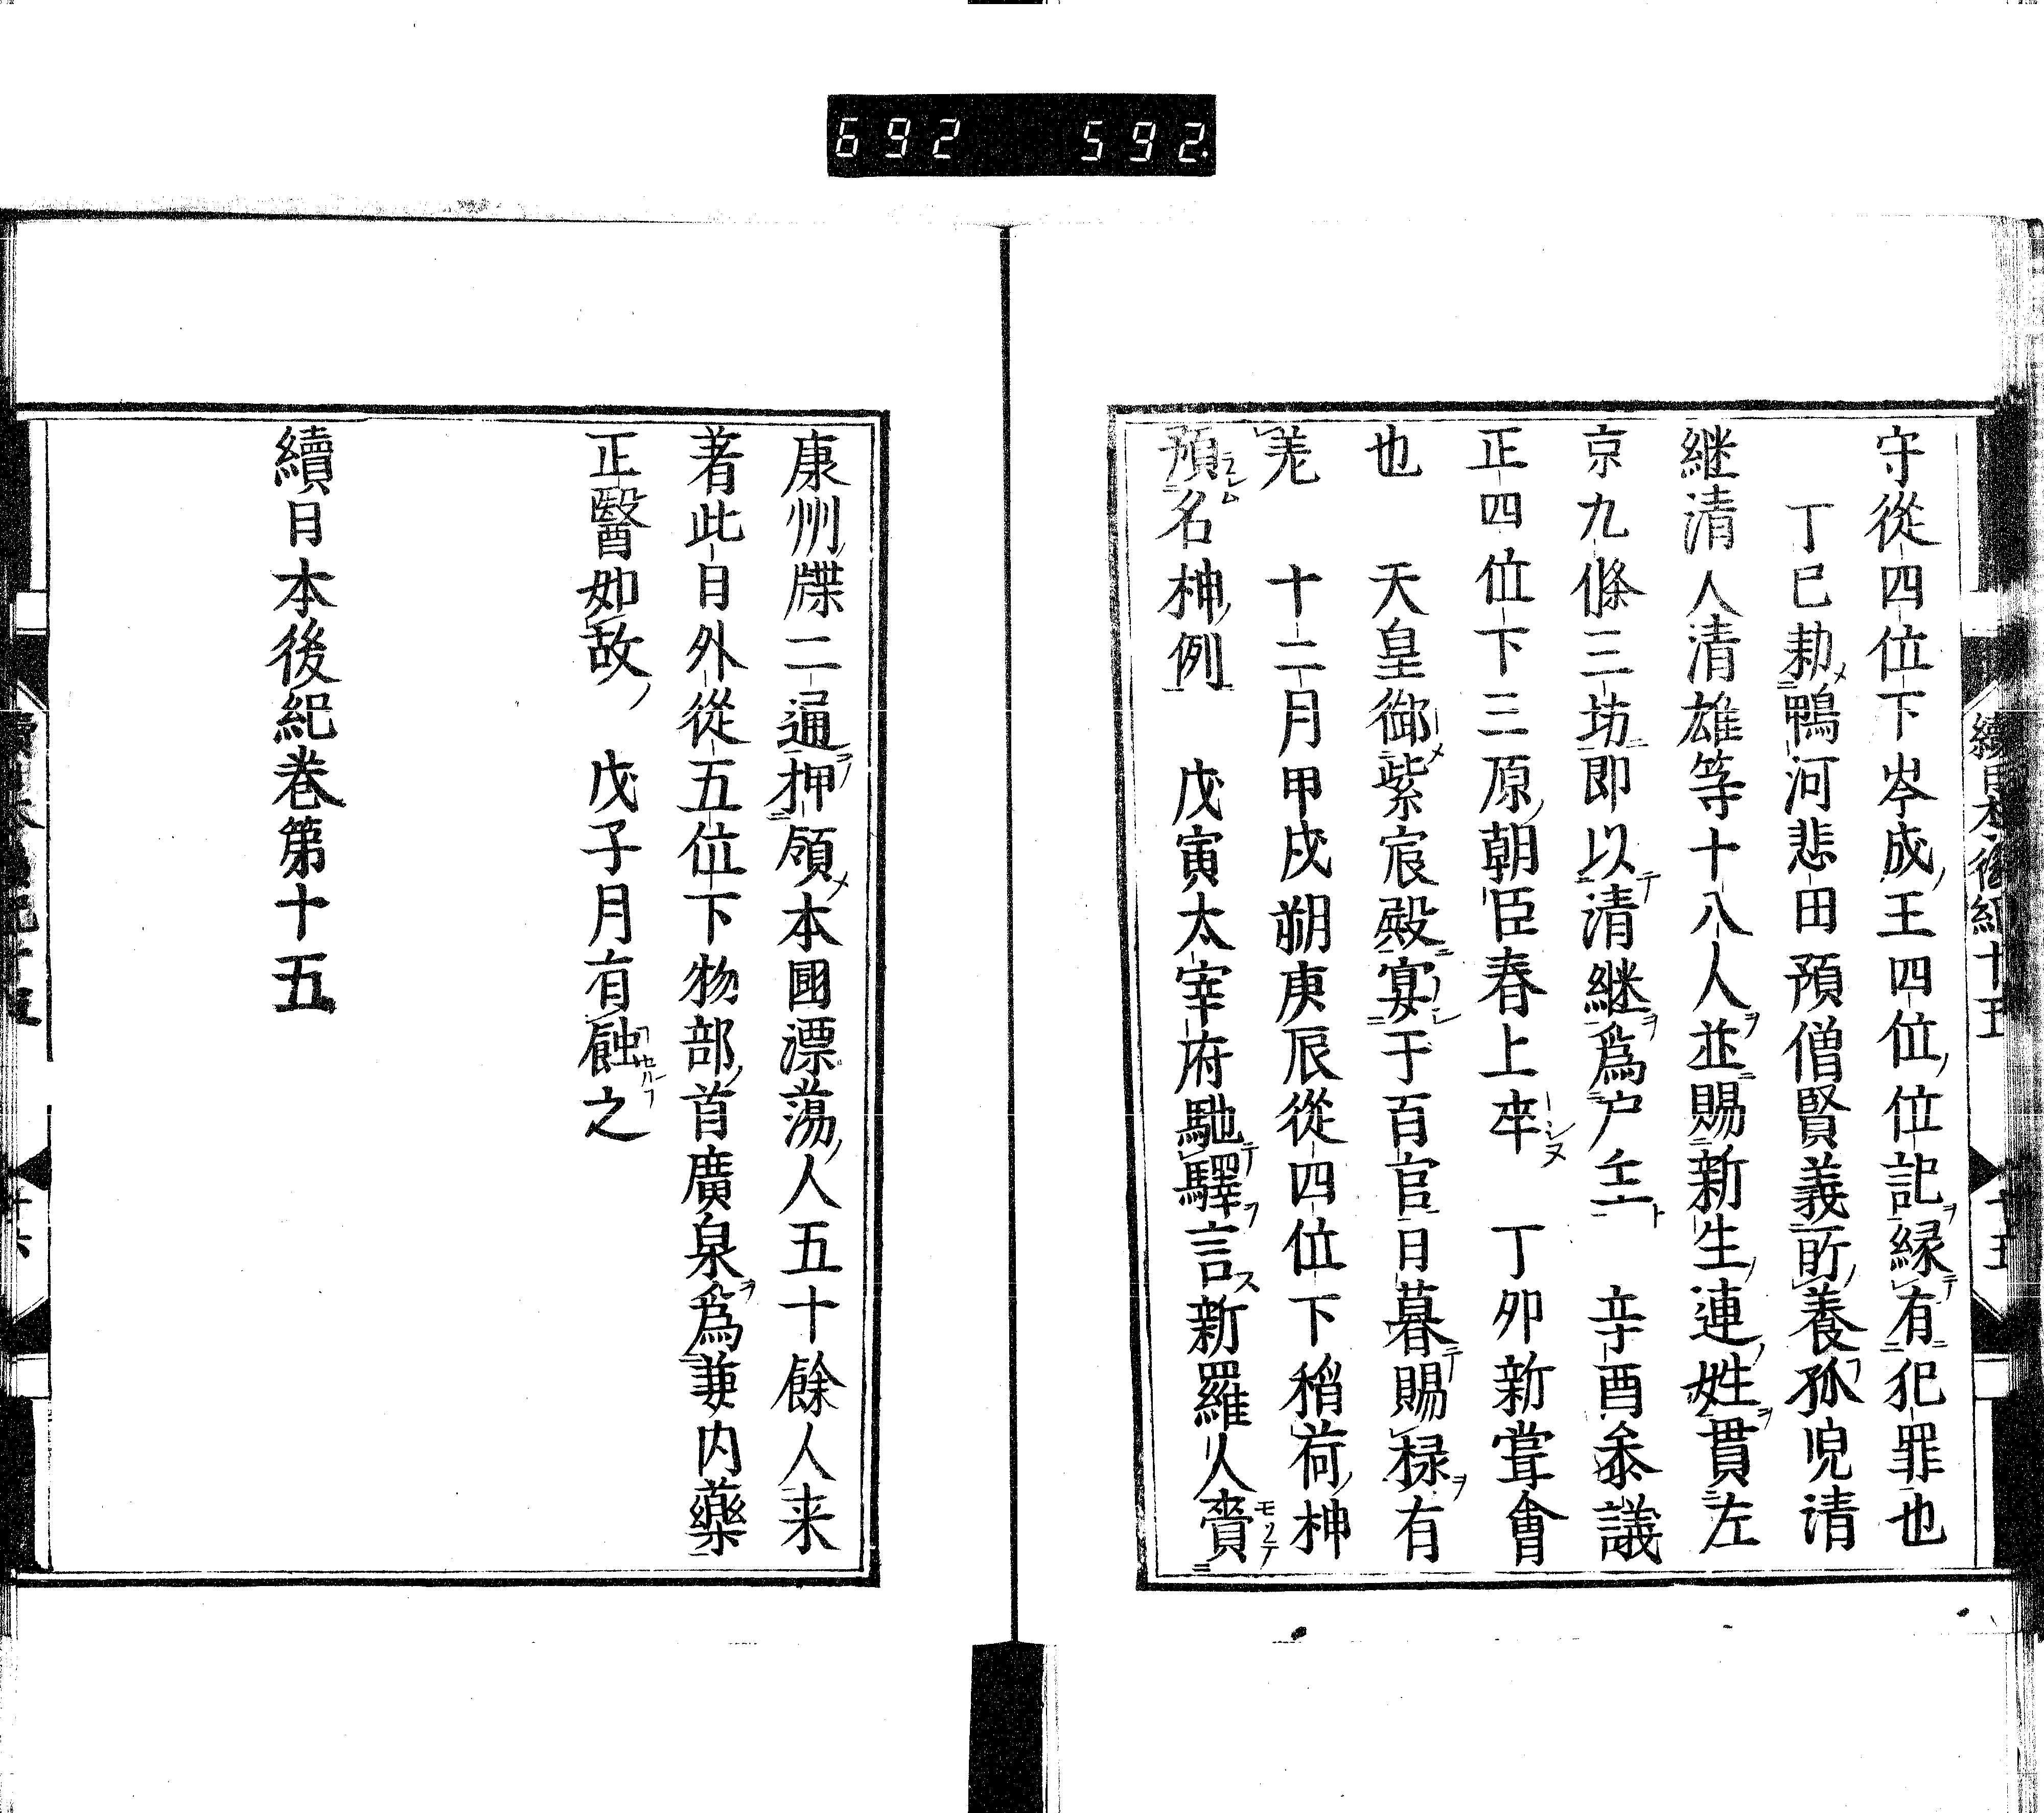 692 592
續日本後紀十五
十五
守從四位下岑成王四位位記縁有犯罪也
丁巳勅鴨河悲田預僧賢義所養孤児清
継清人清雄等十八人並賜新生連姓貫左
京九條三坊即以清継爲户主 辛酉叅議
正四位下三原朝臣春上卒 丁卯新嘗會
也 天皇御紫宸殿宴于百官日暮賜禄有
差 十二月甲戌朔庚辰從四位下稻荷神
預名神例 戊寅太宰府馳驛言新羅人賷
康州牒二通押領本國漂蕩人五十餘人来
着此日外從五位下物部首廣泉爲兼内藥
正醫如故 戊子月有蝕之
續日本後紀卷第十五
十六